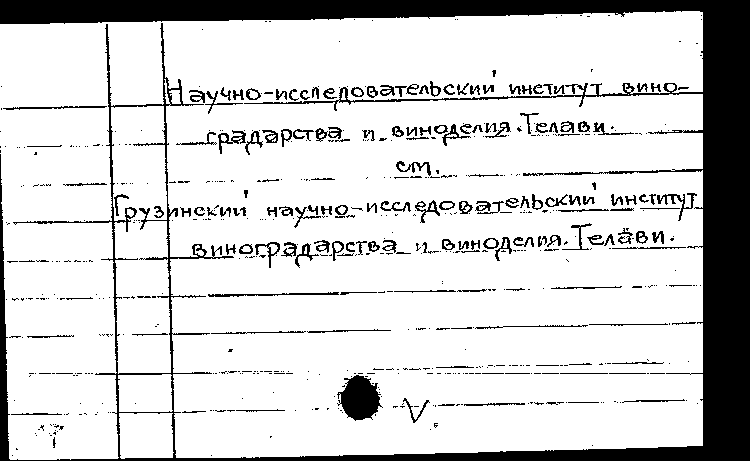 Научно-исследовательский институт вино-
градарства и виноделия. Телави.
см.
Грузинский научно-исследовательский институт
виноградарства и виноделия. Телави.
V